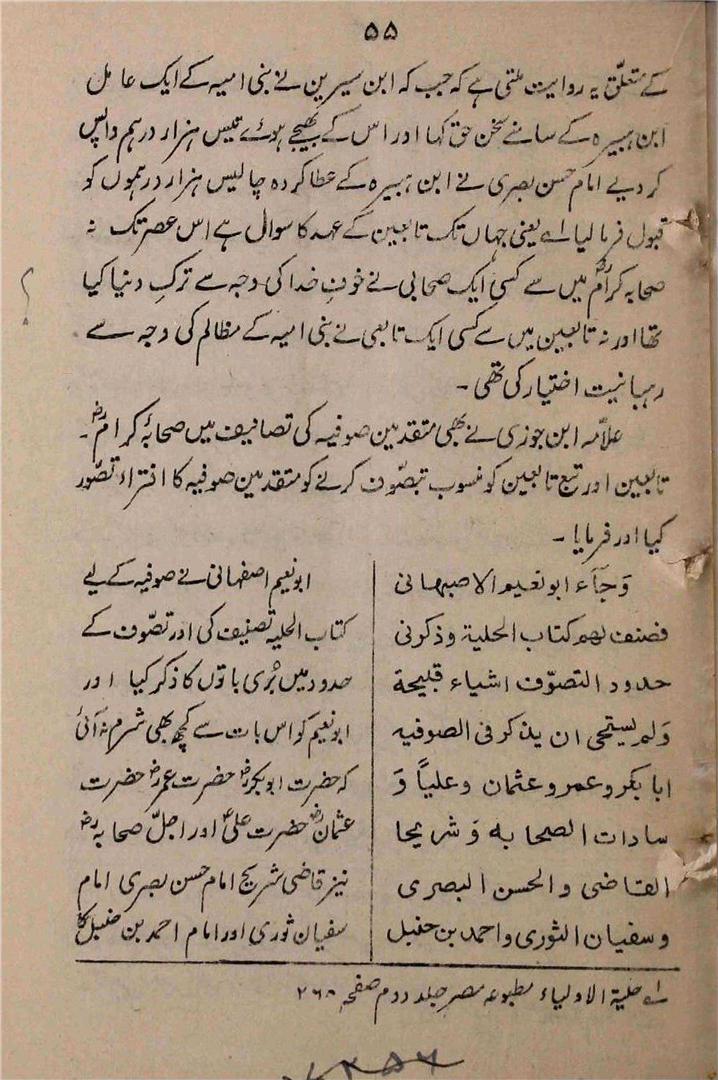 ۵۵
کے متعلّق یہ روایت ملتی ہے کہ جب کہ ابن سیرین نے بنی امیہ کے ایک عامل
ابن ہبیرہ کے سامنے سخن حق کہا اور اس کے بھیجے ہوئے تیس ہزار درہم واپس
کر دیے امام حسن بصری نے ابن ہبیرہ کے عطا کردہ چالیس ہزار درہموں کو
قبول فرما لیا لے یعنی جہاں تک تابعین کے عہد کا سوال ہے اس عصر تک نہ
صحابہ کرامؓ میں سے کسی ایک صحابی نے خوفِ خدا کی وجہ سے ترکِ دنیا کیا
تھا اور نہ تابعین میں سے کسی ایک تابعی نے بنی امیہ کے مظالم کی وجہ سے
رہبانیت اختیار کی تھی۔
علاّمہ ابن جوزی نے بھی متقدمین صوفیہ کی تصانیف میں صحابۂ کرامؓ۔
تابعین اور تبع تابعین کو منسوب بتصّوف کرنے کو متقدمین صوفیہ کا افتراء تصّور
کیا اور فرمایا۔
وَجَآء ابو نعیم الاصبہانی
فصنف لھم کتاب الحلیة وذکر فی
حدود التصوّف اشیاء قبیحة
وَلم یستحی ان یذکر فی الصوفیہ
ابا بکر و عمر و عثمان و علیاً وَ
سادات الصحابہ وَ شریحا
القاضی والحسن البصری
وسفیان الثوری واحمد بن حنبل
ابونعیم اصفہانی نے صوفیہ کے لیے
کتاب الحلیہ تصنیف کی اور تصّوف کے
حدود میں بُری باتوں کا ذکر کیا اور
ابونعیم کو اس بات سے کچھ بھی شرم نہ آئی
کہ حضرت ابوبکرؓ حضرت عمرؓ حضرت
عثمانؓ حضرت علیؓ اور اجلّ صحابہؓ
نیز قاضی شریح امام حسن بصری امام
سفیان ثوری اور امام احمد بن حنبلؒ کا
لے حلیة الاولیاء مطبوعہ مصر جلد دوم صفحہ ۲۶۸